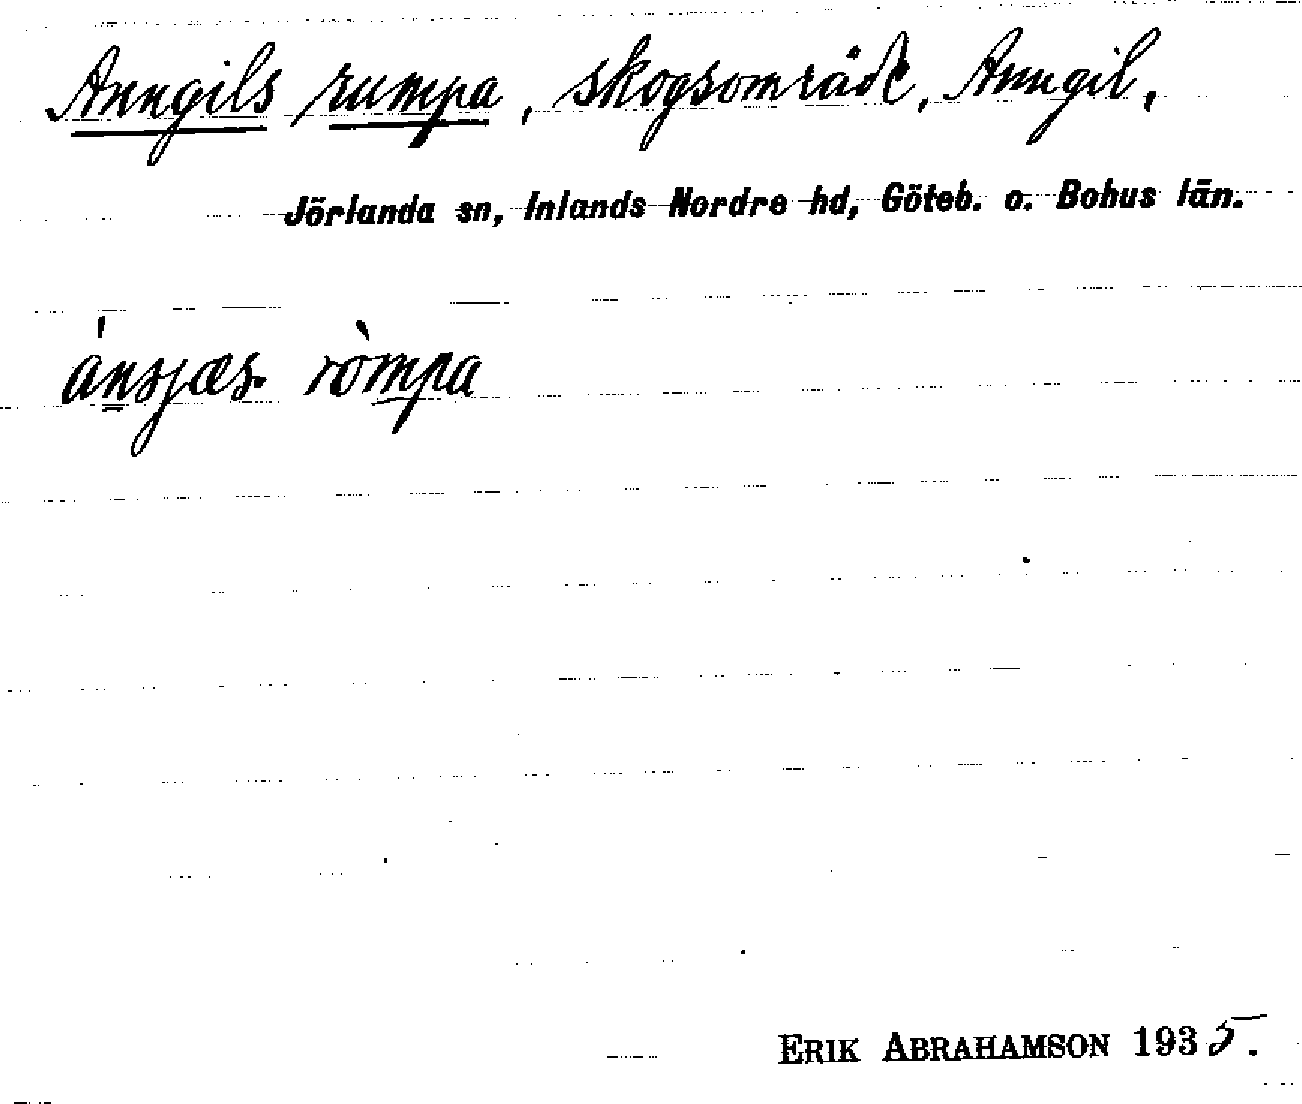 Anngils rumpa, skogsområde, Anngil,
Jörlanda sn, Inlands Nordre hd, Göteb. o. Bohus län.
ánsjæs. ròmpa
ERIK ABRAHAMSON 1935.